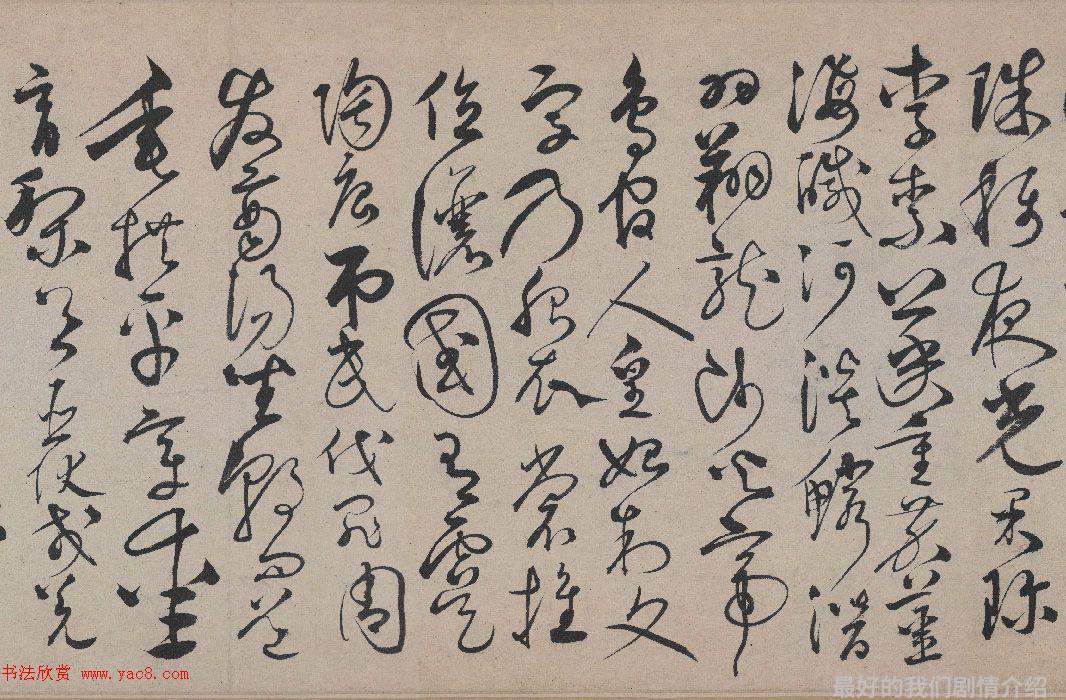 珠稱夜光果珍
李柰菜重芥薑
海鹹河淡鱗潛
羽翔龍師火帝
鳥官人皇始制文
字乃服衣裳推
位讓國有虞
陶唐弔民伐罪周
發商湯坐朝問道
垂拱平章
育黎首臣伏戎羌
书法欣赏 www.yac8.com
最好的我们剧情介绍